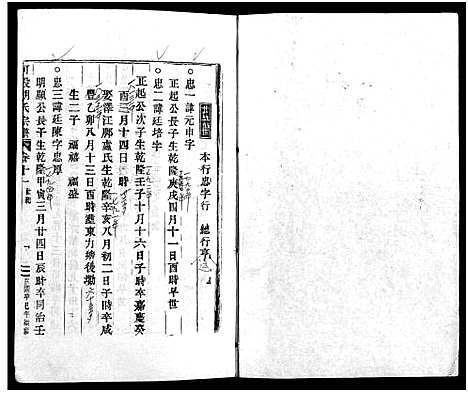 本行忠字行 總行亨
忠一諱元申字
正起公長子生乾隆庚戌四月十一日酉時早世
忠二諱廷培字
正起公次子生乾隆壬子十月十六日子時卒嘉慶癸
酉三月十四日 時
娶澤江鄺盧氏生乾隆辛亥八月初二日子時卒咸
豐乙卯八月十三日酉時葬東力塝後塝
生二子 福禧 福盛
忠三諱廷陳字忠厚
明顯公長子生乾隆甲寅三月廿四日辰時卒同治壬
胡氏宗譜 卷十一